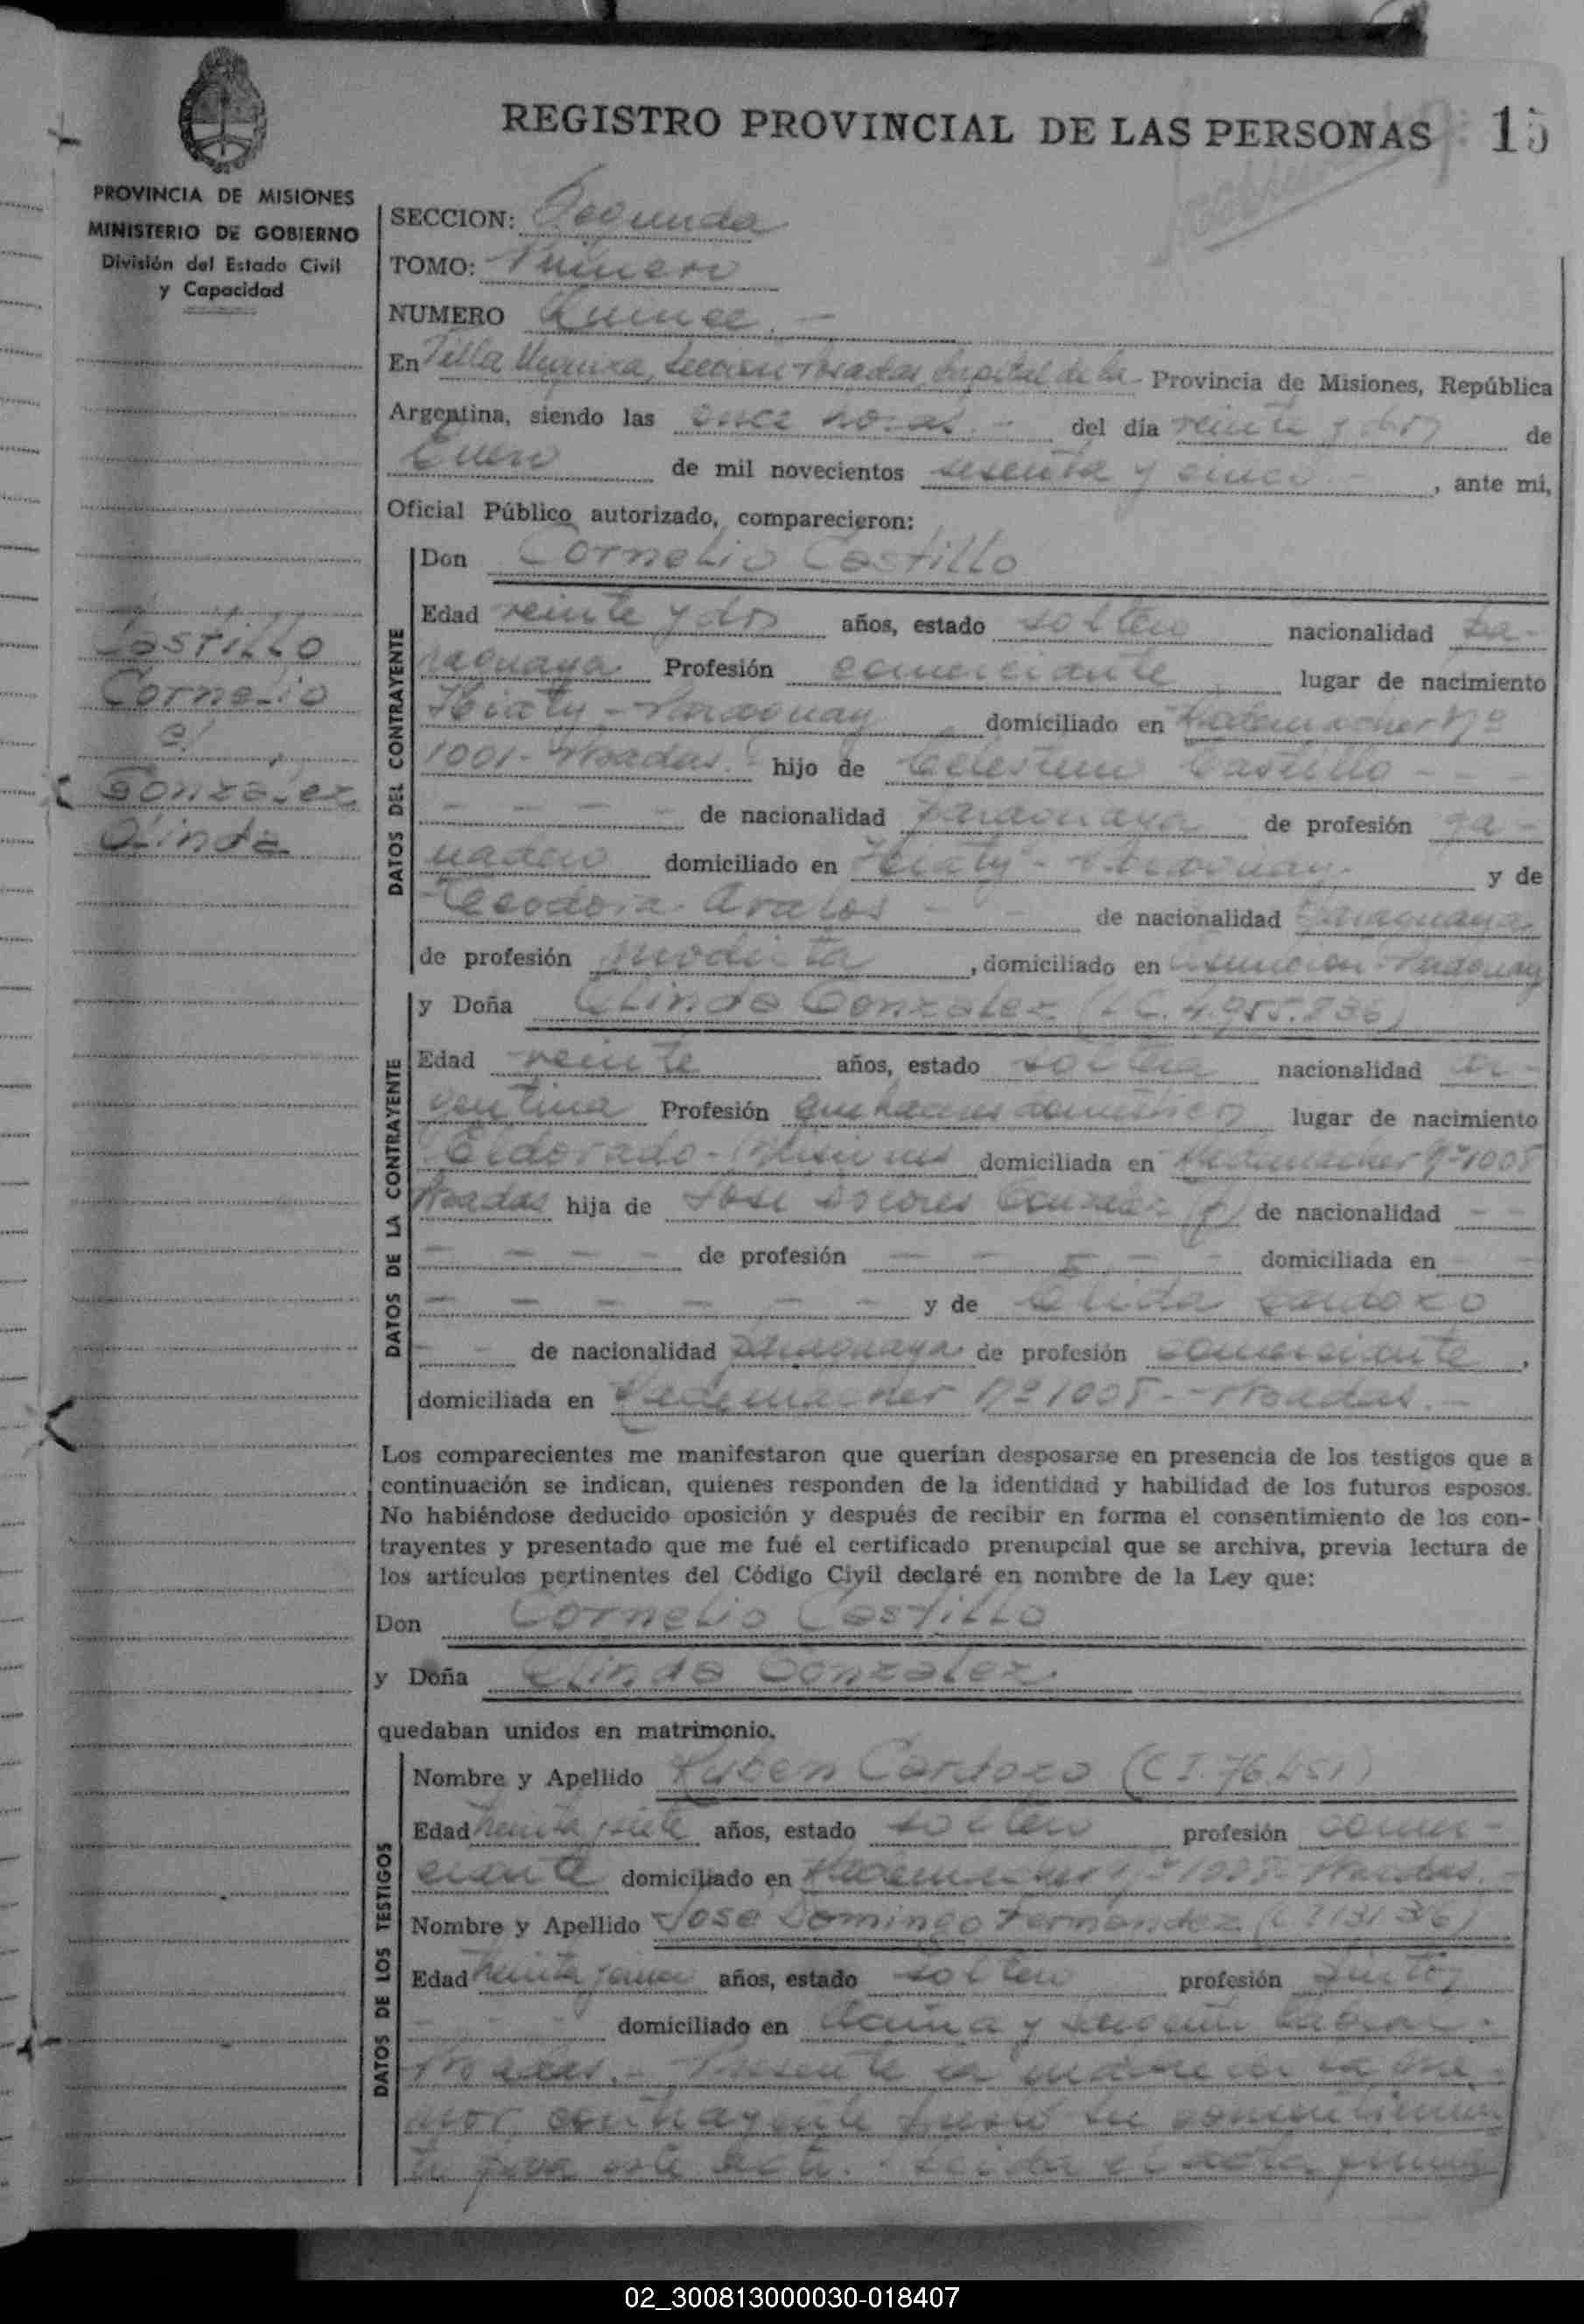 REGISTRO PROVINCIAL DE LAS PERSONAS 15
PROVINCIA DE MISIONES
MINISTERIO DE GOBIERNO
División del Estado Civil
y Capacidad
SECCION: Segunda
TOMO: Primero
NUMERO Quince. -
En Villa Urquiza, Sección Posadas, Capital de la Provincia de Misiones, República
Argentina, siendo las once horas. - del día veinte y dos de
Enero de mil novecientos sesenta y cinco. - , ante mi,
Oficial Público autorizado, comparecieron:
Castillo
Cornelio
c/
Gonzalez
Olinda
DATOS DEL CONTRAYENTE
Don Cornelio Castillo
Edad veinte y dos años, estado soltero nacionalidad pa-
raguaya Profesión comerciante lugar de nacimiento
- Paraguay domiciliado en Nº
1001 - Posadas. - hijo de Celestino Castillo - - -
- - - - de nacionalidad paraguaya de profesión ga-
nadero domiciliado en - Paraguay. y de
Teodora Avalos - - de nacionalidad paraguaya
de profesión modista , domiciliado en Asunción - Paraguay
DATOS DE LA CONTRAYENTE
y Doña Olinda Gonzalez (L C. 4.955.236)
Edad veinte años, estado soltera nacionalidad ar-
gentina Profesión quehaceres domésticos lugar de nacimiento
Eldorado - Misiones domiciliada en Nº 1005
Posadas hija de José Dolores Gonzalez (f) de nacionalidad - -
- - - - de profesión - - - - - domiciliada en - -
- - - - - - - y de Elida Cardozo
- - de nacionalidad paraguaya de profesión comerciante ,
domiciliada en Nº 1005 - Posadas. -
Los comparecientes me manifestaron que querían desposarse en presencia de los testigos que a
continuación se indican, quienes responden de la identidad y habilidad de los futuros esposos.
No habiéndose deducido oposición y después de recibir en forma el consentimiento de los con-
trayentes y presentado que me fué el certificado prenupcial que se archiva, previa lectura de
los artículos pertinentes del Código Civil declaré en nombre de la Ley que:
Don Cornelio Castillo
y Doña Olinda Gonzalez.
quedaban unidos en matrimonio.
DATOS DE LOS TESTIGOS
Nombre y Apellido Ruben Cardozo (C I. 76.451)
Edad treinta y siete años, estado soltero profesión comer-
ciante domiciliado en Nº 1005 - Posadas. -
Nombre y Apellido Jose Domingo Fernandez
Edad treinta y años, estado soltero profesión pintor
- - domiciliado en y Sargento Cabral -
Posadas. - Presente la madre de la me-
nor contrayente prestó su consentimien-
to para este acto. - Leida el acta firman
02_300813000030-018407